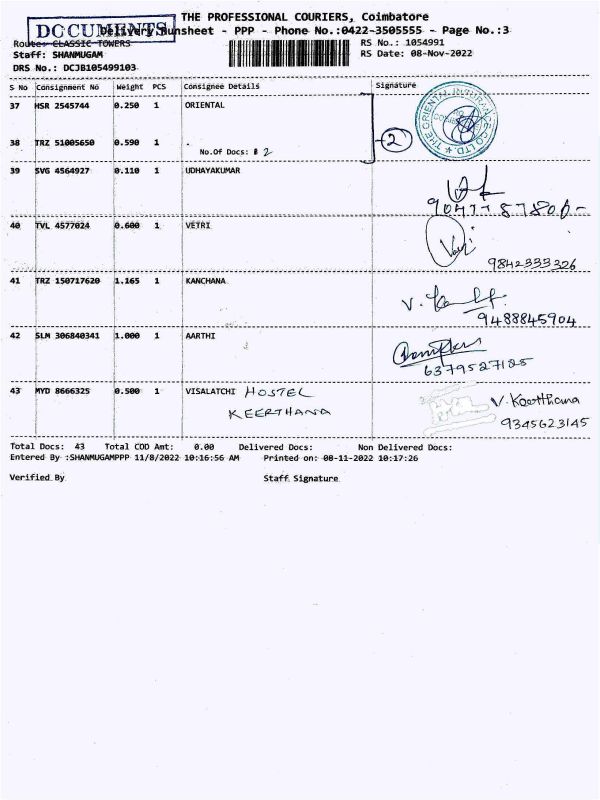 THE PROFESSIONAL COURIERS, Coimbatore
DOCUMENTS
Delivery Runsheet - PPP - Phone No.:0422-3505555 - Page No.:3
Route: CLASSIC TOWERS
RS No.: 1054991
Staff: SHANMUGAM
RS Date: 08-Nov-2022
DRS No.: DCJB105499103
S No Consignment No Weight PCS Consignee Details Signature
37 HSR 2545744 0.250 1 ORIENTAL
THE ORIENTAL INSURANCE CO LTD.
38 TRZ 51005650 0.590 1 .
2
No.Of Docs: 2
39 SVG 4564927 0.110 1 UDHAYAKUMAR
40 TVL 4577024 0.600 1 VETRI
9842333326
41 TRZ 150717620 1.165 1 KANCHANA
9488845904
42 SLM 306840341 1.000 1 AARTHI
6379527125
43 MYD 8666325 0.500 1 VISALATCHI HOSTEL
V. Keerthana
KEERTHANA
9345623145
Total Docs: 43 Total COD Amt: 0.00 Delivered Docs: Non Delivered Docs:
Entered By :SHANMUGAMPPP 11/8/2022 10:16:56 AM Printed on: 08-11-2022 10:17:26
Verified By Staff Signature